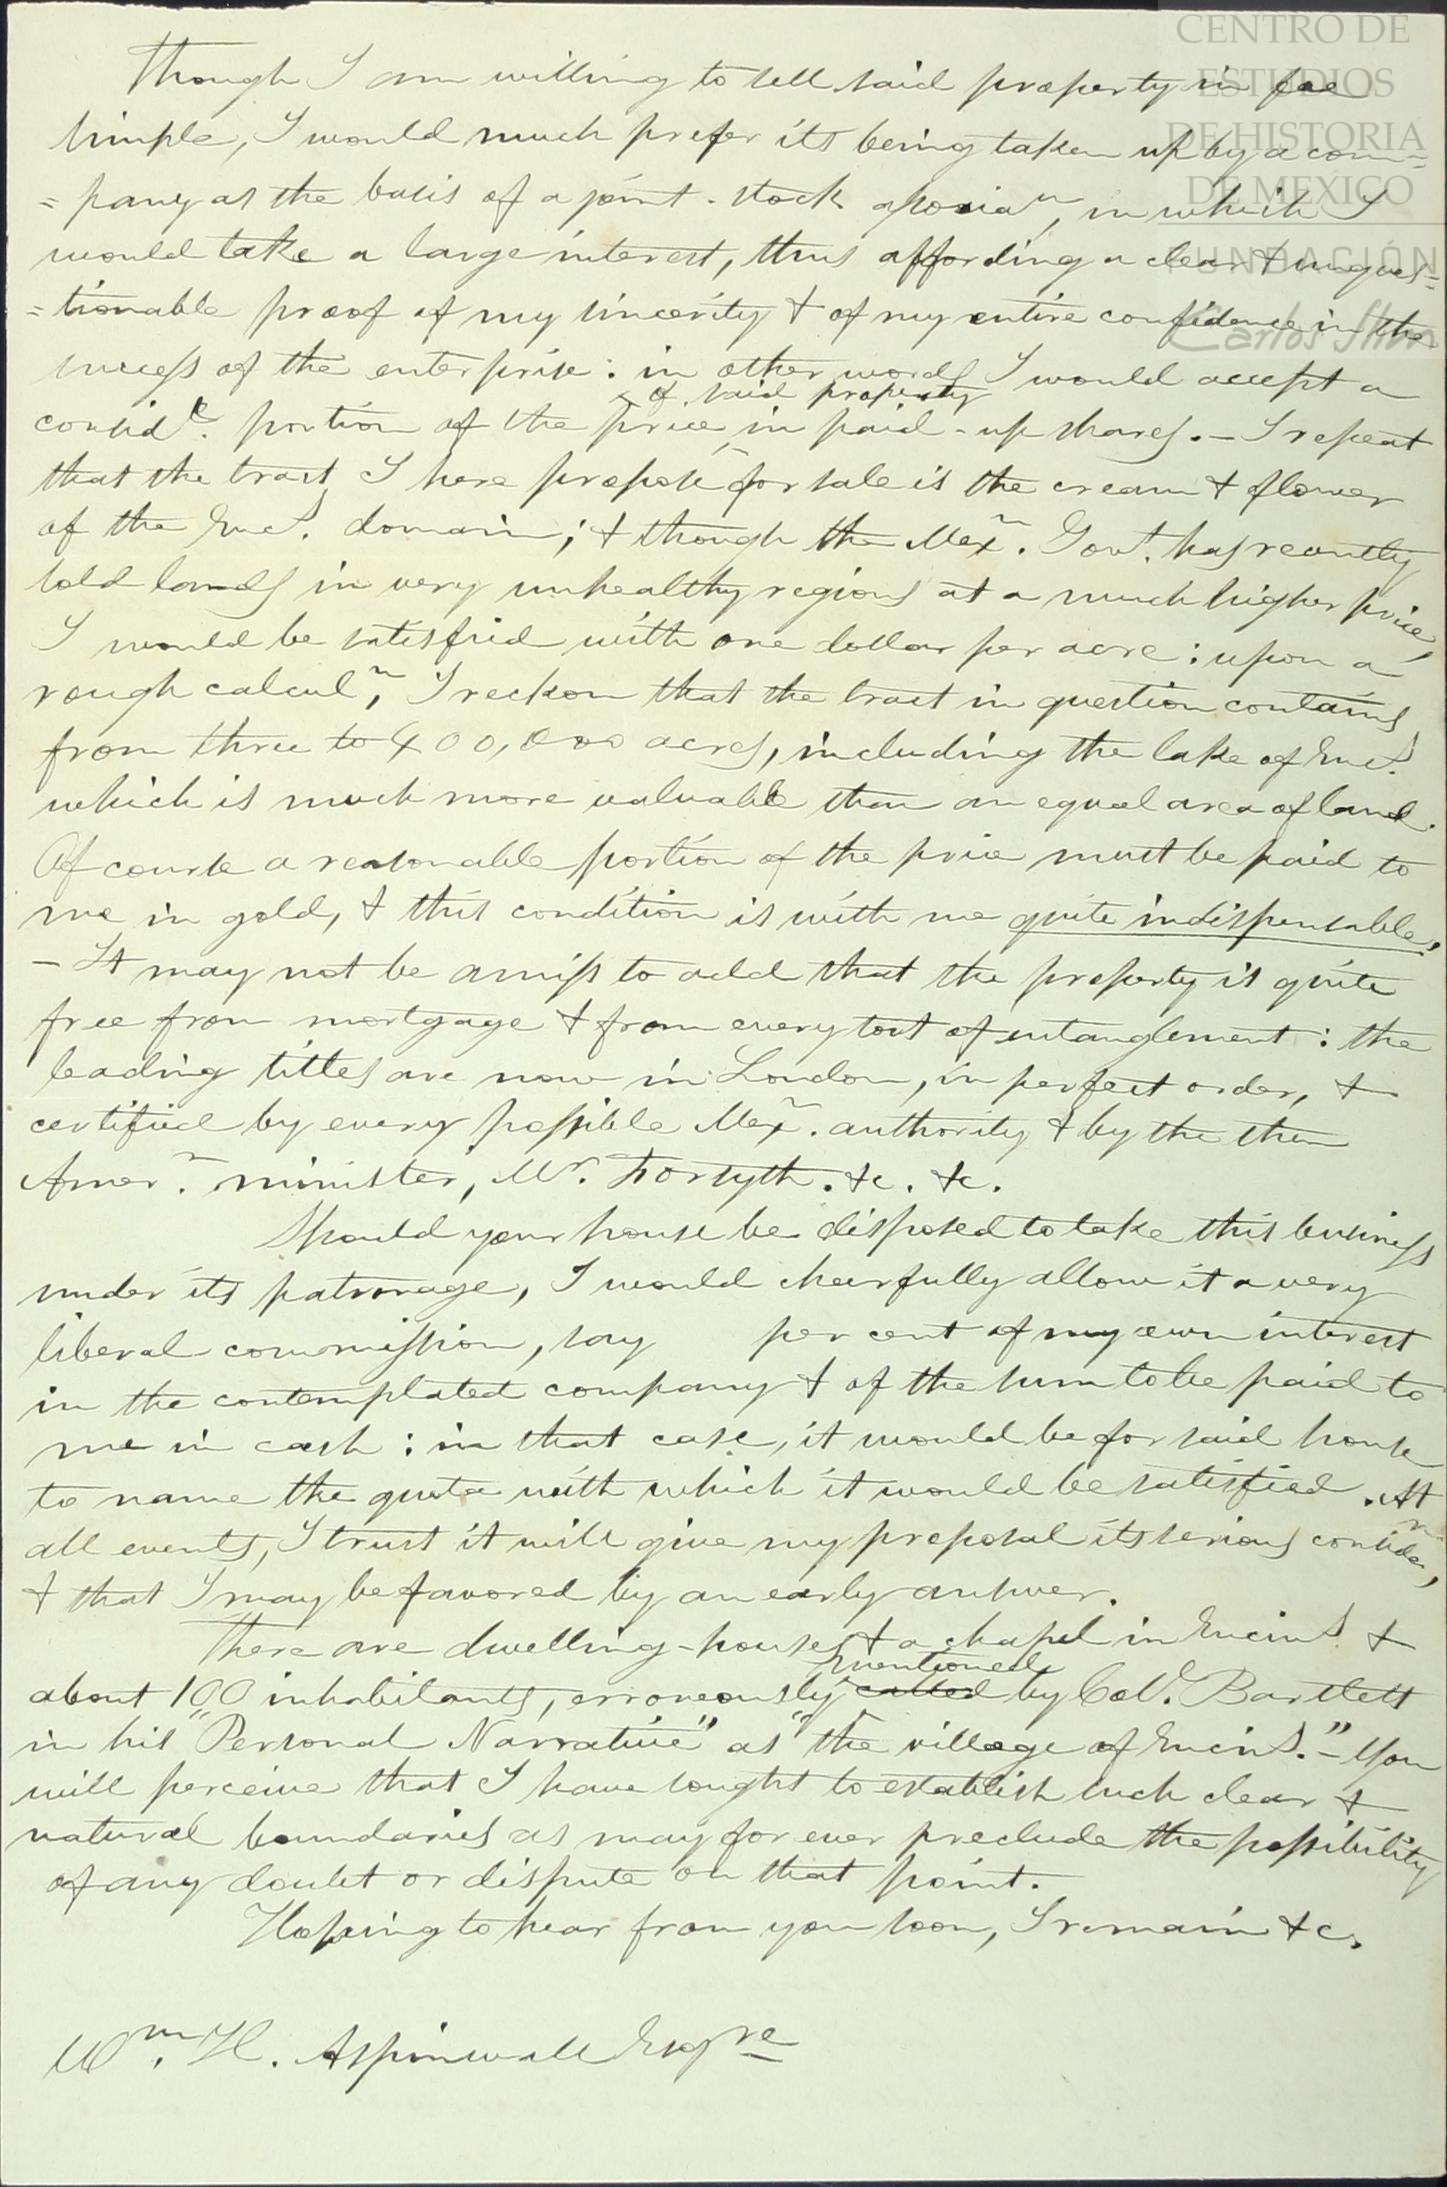 CENTRO DE
ESTUDIOS
DE HISTORIA
DE MEXICO
FUNDACIÓN
Carlos Slim
Though I am willing to sell said property in fee
simple, I would much prefer its being taken up by a com=
=pany as the basis of a joint-stock associan, in which I
would take a large interest, thus affording a clear & unques=
=tionable proof of my sincerity & of my entire confidence in the
success of the enterprise: in other words I would accept a
considle. portion of the price of said property in paid-up shares. – I repeat
that the tract I here propose for sale is the cream & flower
of the Encs. domain; & though the Mexn. Govt. has recently
sold lands in very unhealthy regions at a much higher price,
I would be satisfied with one dollar per acre: upon a
rough calculn, I reckon that the tract in question contains
from three to 400,000 acres, including the lake of Encs.
which is much more valuable than an equal area of land.
Of course a reasonable portion of the price must be paid to
me in gold, & this condition is with me quite indispensable.
– It may not be amiss to add that the property is quite
free from mortgage & from every sort of entanglement: the
leading titles are now in London, in perfect order, &
certified by every possible Mexn. authority & by the then
Amern. minister, Mr. Forsyth. &c. &c.
Should your house be disposed to take this business
under its patronage, I would cheerfully allow it a very
liberal commission, say per cent of my own interest
in the contemplated company & of the sum to be paid to
me in cash: in that case, it would be for said house
to name the quota with which it would be satisfied. At
all events, I trust it will give my proposal its serious considen,
& that I may be favored by an early answer.
There are dwelling-houses & a chapel in Encins. &
about 100 inhabitants, erroneously called mentioned by Col. Bartlett
in his "Personal Narrative" as "the village of Encins." – You
will perceive that I have sought to establish such clear &
natural boundaries as may for ever preclude the possibility
of any doubt or dispute on that point.
Hoping to hear from you soon, I remain &c.
Wm. H. Aspinwall Esqre